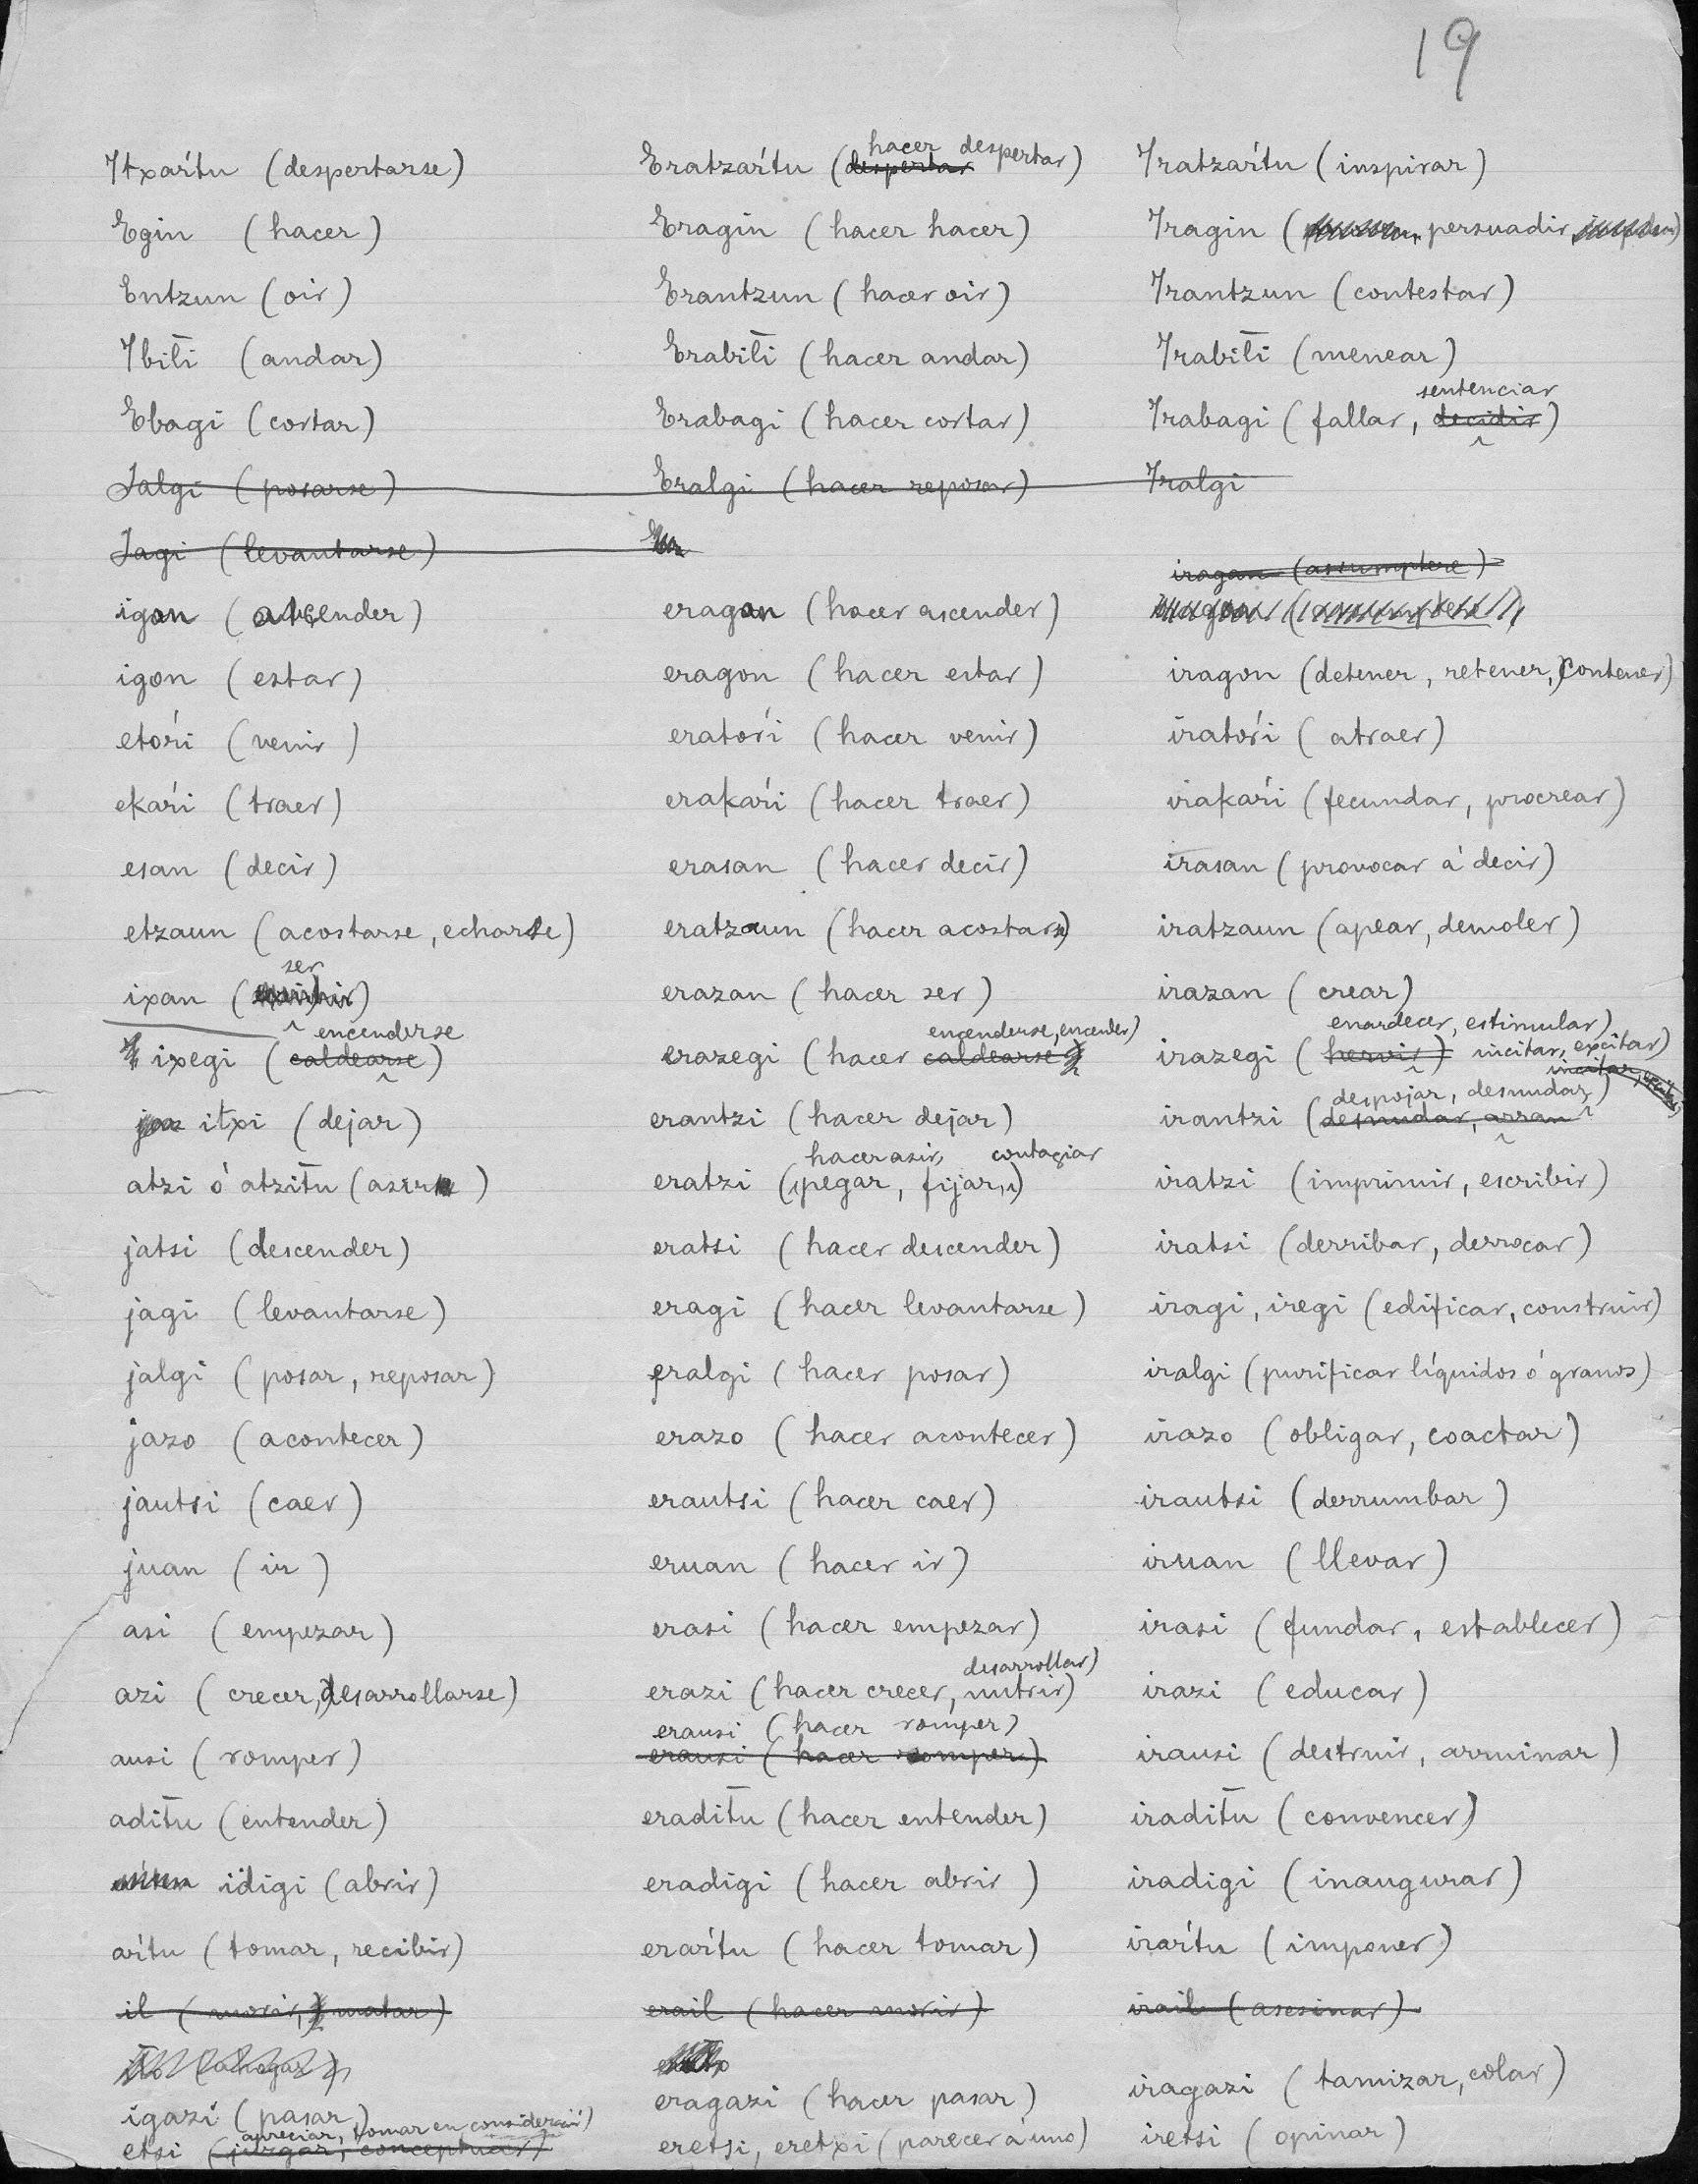 19
Itxaŕtu (despertarse) Eratzaŕtu (despertar hacer despertar) Iratzaŕtu (inspirar)
Egin (hacer) Eragin (hacer hacer) Iragin (persuadir)
Entzun (oir) Erantzun (hacer oir) Irantzun (contestar)
Ibilt̄i (andar) Erabilt̄i (hacer andar) Irabilt̄i (menear)
Ebagi (cortar) Erabagi (hacer cortar) Irabagi (fallar, decidir sentenciar)
Jalgi (posarse) Eralgi (hacer reposar) Iralgi
Jagi (levantarse)
iragan (assumptere)
igan (ascender) eragan (hacer ascender)
igon (estar) eragon (hacer estar) iragon (detener, retener, contener)
etoŕi (venir) eratoŕi (hacer venir) iratoŕi (atraer)
ekaŕi (traer) erakaŕi (hacer traer) irakaŕi (fecundar, procrear)
esan (decir) erasan (hacer decir) irasan (provocar á decir)
etzaun (acostarse, echarse) eratzaun (hacer acostarse) iratzaun (apear, demoler)
ixan (ser) erazan (hacer ser) irazan (crear)
ixegi (caldearse encenderse) erazegi (hacer caldearse encenderse, encender) irazegi (hervir) enardecer, estimular) incitar, excitar)
itxi (dejar) erantzi (hacer dejar) irantzi (desnudar, arran despojar, desnudar)
atzi ó atzitu (asir) eratzi (hacer asir, pegar, fijar, contagiar) iratzi (imprimir, escribir)
jatsi (descender) eratsi (hacer descender) iratsi (derribar, derrocar)
jagi (levantarse) eragi (hacer levantarse) iragi, iregi (edificar, construir)
jalgi (posar, reposar) eralgi (hacer posar) iralgi (purificar líquidos ó granos)
jazo (acontecer) erazo (hacer acontecer) irazo (obligar, coactar)
jautsi (caer) erautsi (hacer caer) irautsi (derrumbar)
juan (ir) eruan (hacer ir) iruan (llevar)
asi (empezar) erasi (hacer empezar) irasi (fundar, establecer)
azi (crecer, desarrollarse) erazi (hacer crecer, nutrir) desarrollar) irazi (educar)
erausi (hacer romper)
ausi (romper) erausi (hacer romper) irausi (destruir, arruinar)
adit̄u (entender) eradit̄u (hacer entender) iradit̄u (convencer)
idigi (abrir) eradigi (hacer abrir) iradigi (inaugurar)
aŕtu (tomar, recibir) eraŕtu (hacer tomar) iraŕtu (imponer)
il (morir, matar) erail (hacer morir) irail (asesinar)
igazi (pasar) eragazi (hacer pasar) iragazi (tamizar, colar)
etsi (juzgar, conceptuar) apreciar, tomar en consideración) eretsi, eretxi (parecer á uno) iretsi (opinar)